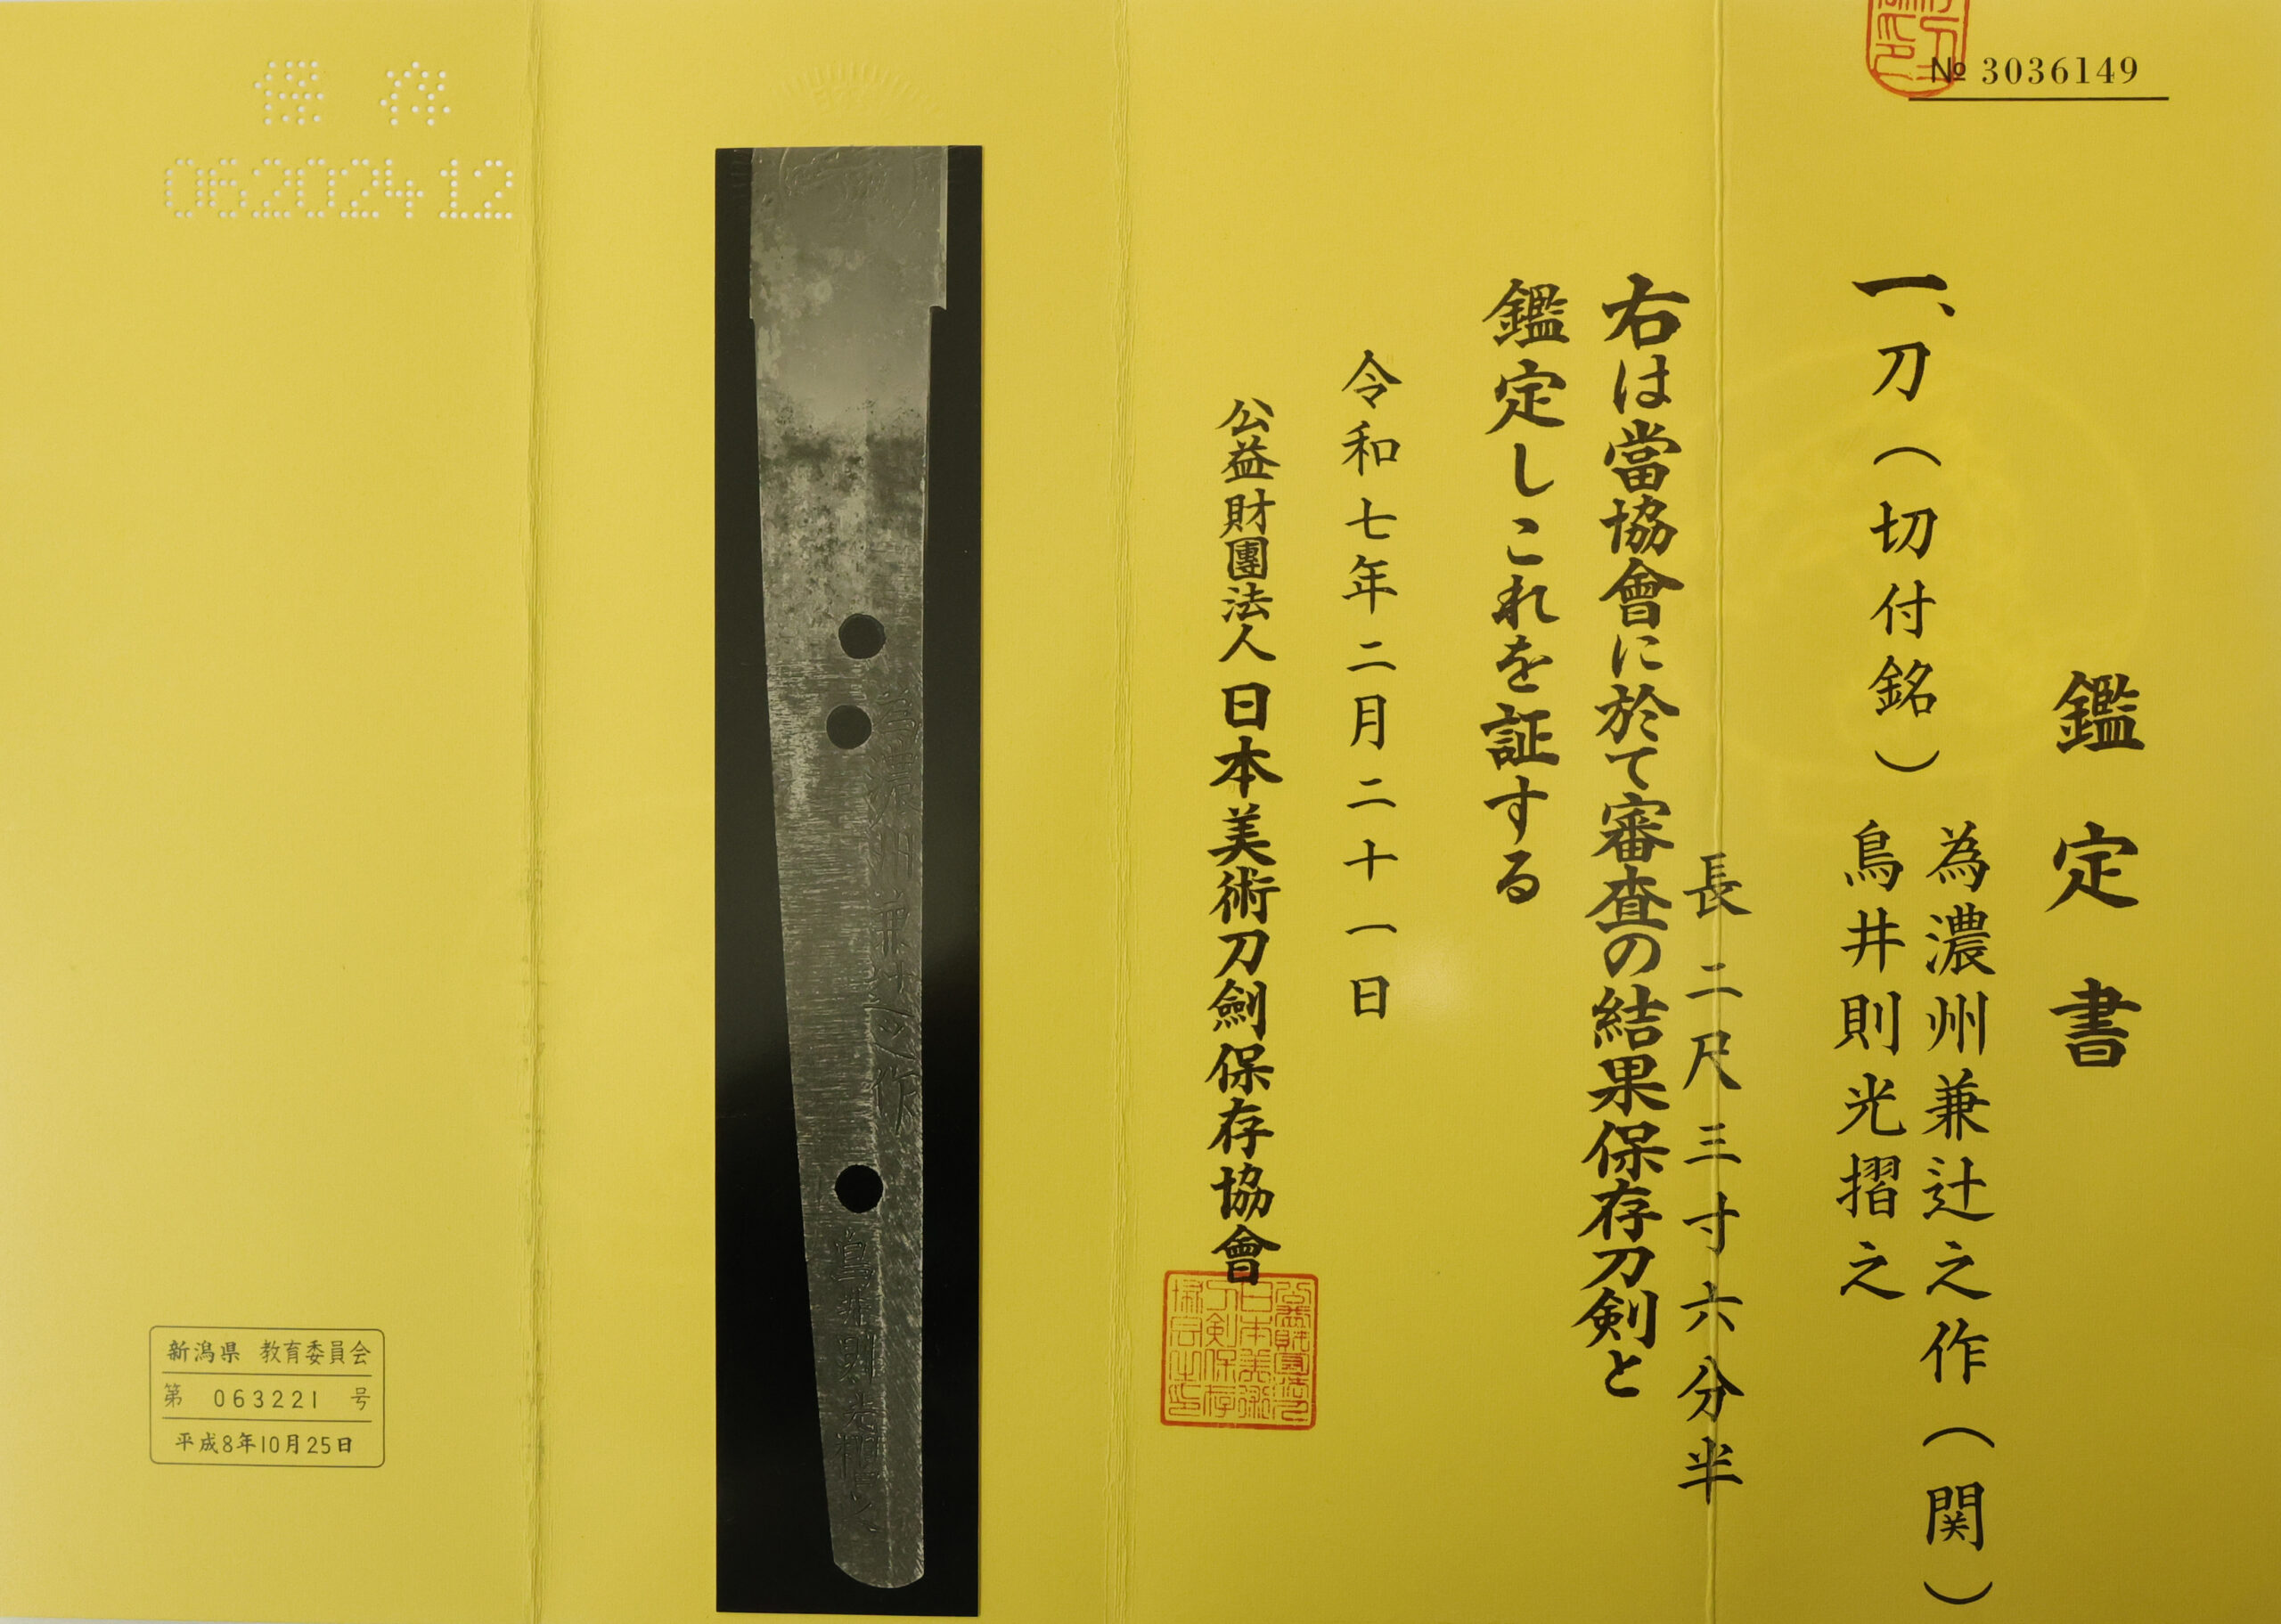 № 3036149
鑑定書
一、刀(切付銘)
為濃州兼辻之作(関)
鳥井則光摺之
長二尺三寸六分半
右は當協會に於て審査の結果保存刀剣と
鑑定しこれを証する
令和七年二月二十一日
公益財團法人 日本美術刀劍保存協會
為濃州兼辻之作
鳥井則光摺之
保存
06202412
新潟県 教育委員会
第 063221 号
平成8年10月25日